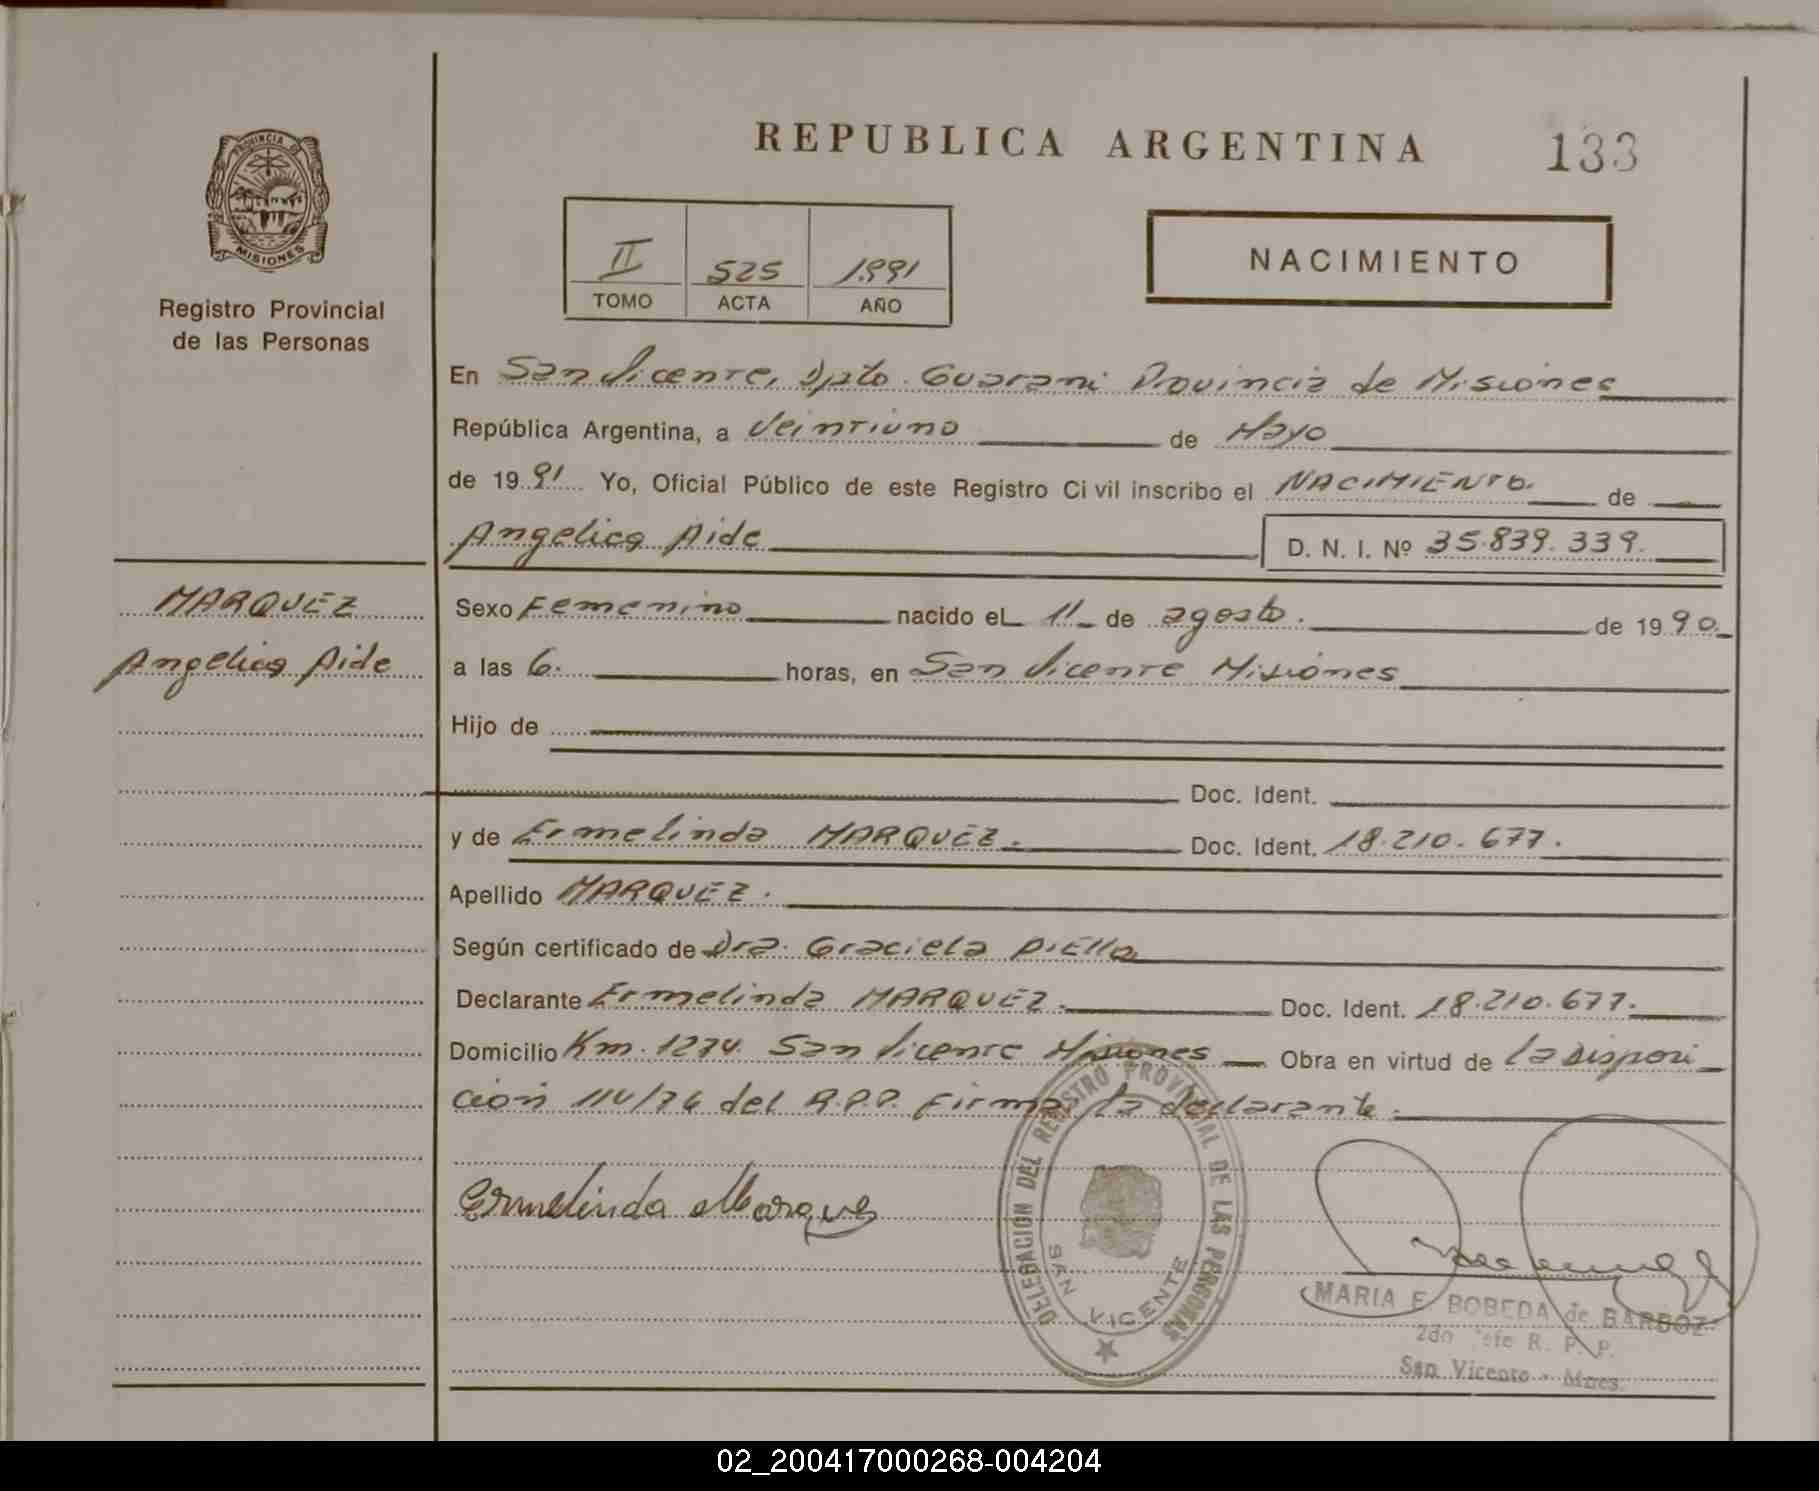 PROVINCIA DE
MISIONES
Registro Provincial
de las Personas
MARQUEZ
Angelica Aide
REPUBLICA ARGENTINA 133
II 525 1.991
TOMO ACTA AÑO
NACIMIENTO
En San Vicente, Dpto. Guarani Provincia de Misiones
República Argentina, a Veintiuno de Mayo
de 19 91 Yo, Oficial Público de este Registro Civil inscribo el NACIMIENTO. de
Angelica Aide D. N. I. Nº 35.839.339.
Sexo Femenino nacido el 11 de agosto. de 19 90.
a las 6. horas, en San Vicente Misiones
Hijo de
Doc. Ident.
y de Ermelinda MARQUEZ. Doc. Ident. 18.210.677.
Apellido MARQUEZ.
Según certificado de Dra. Graciela
Declarante Ermelinda MARQUEZ. Doc. Ident. 18.210.677.
Domicilio Km. 1274. San Vicente Misiones Obra en virtud de la disposi
ción 114/76 del R.P.P. Firma la declarante.
Ermelinda Marquez
DELEGACION DEL REGISTRO PROVINCIAL DE LAS PERSONAS
SAN VICENTE
MARIA E. BOBEDA de BARBOZ
2do Jefe R. P. P.
San Vicente - Mnes.
02_200417000268-004204